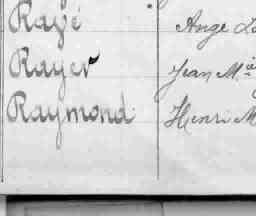 Rayé Ange
Rayer Jean Mie
Raymond Henri M